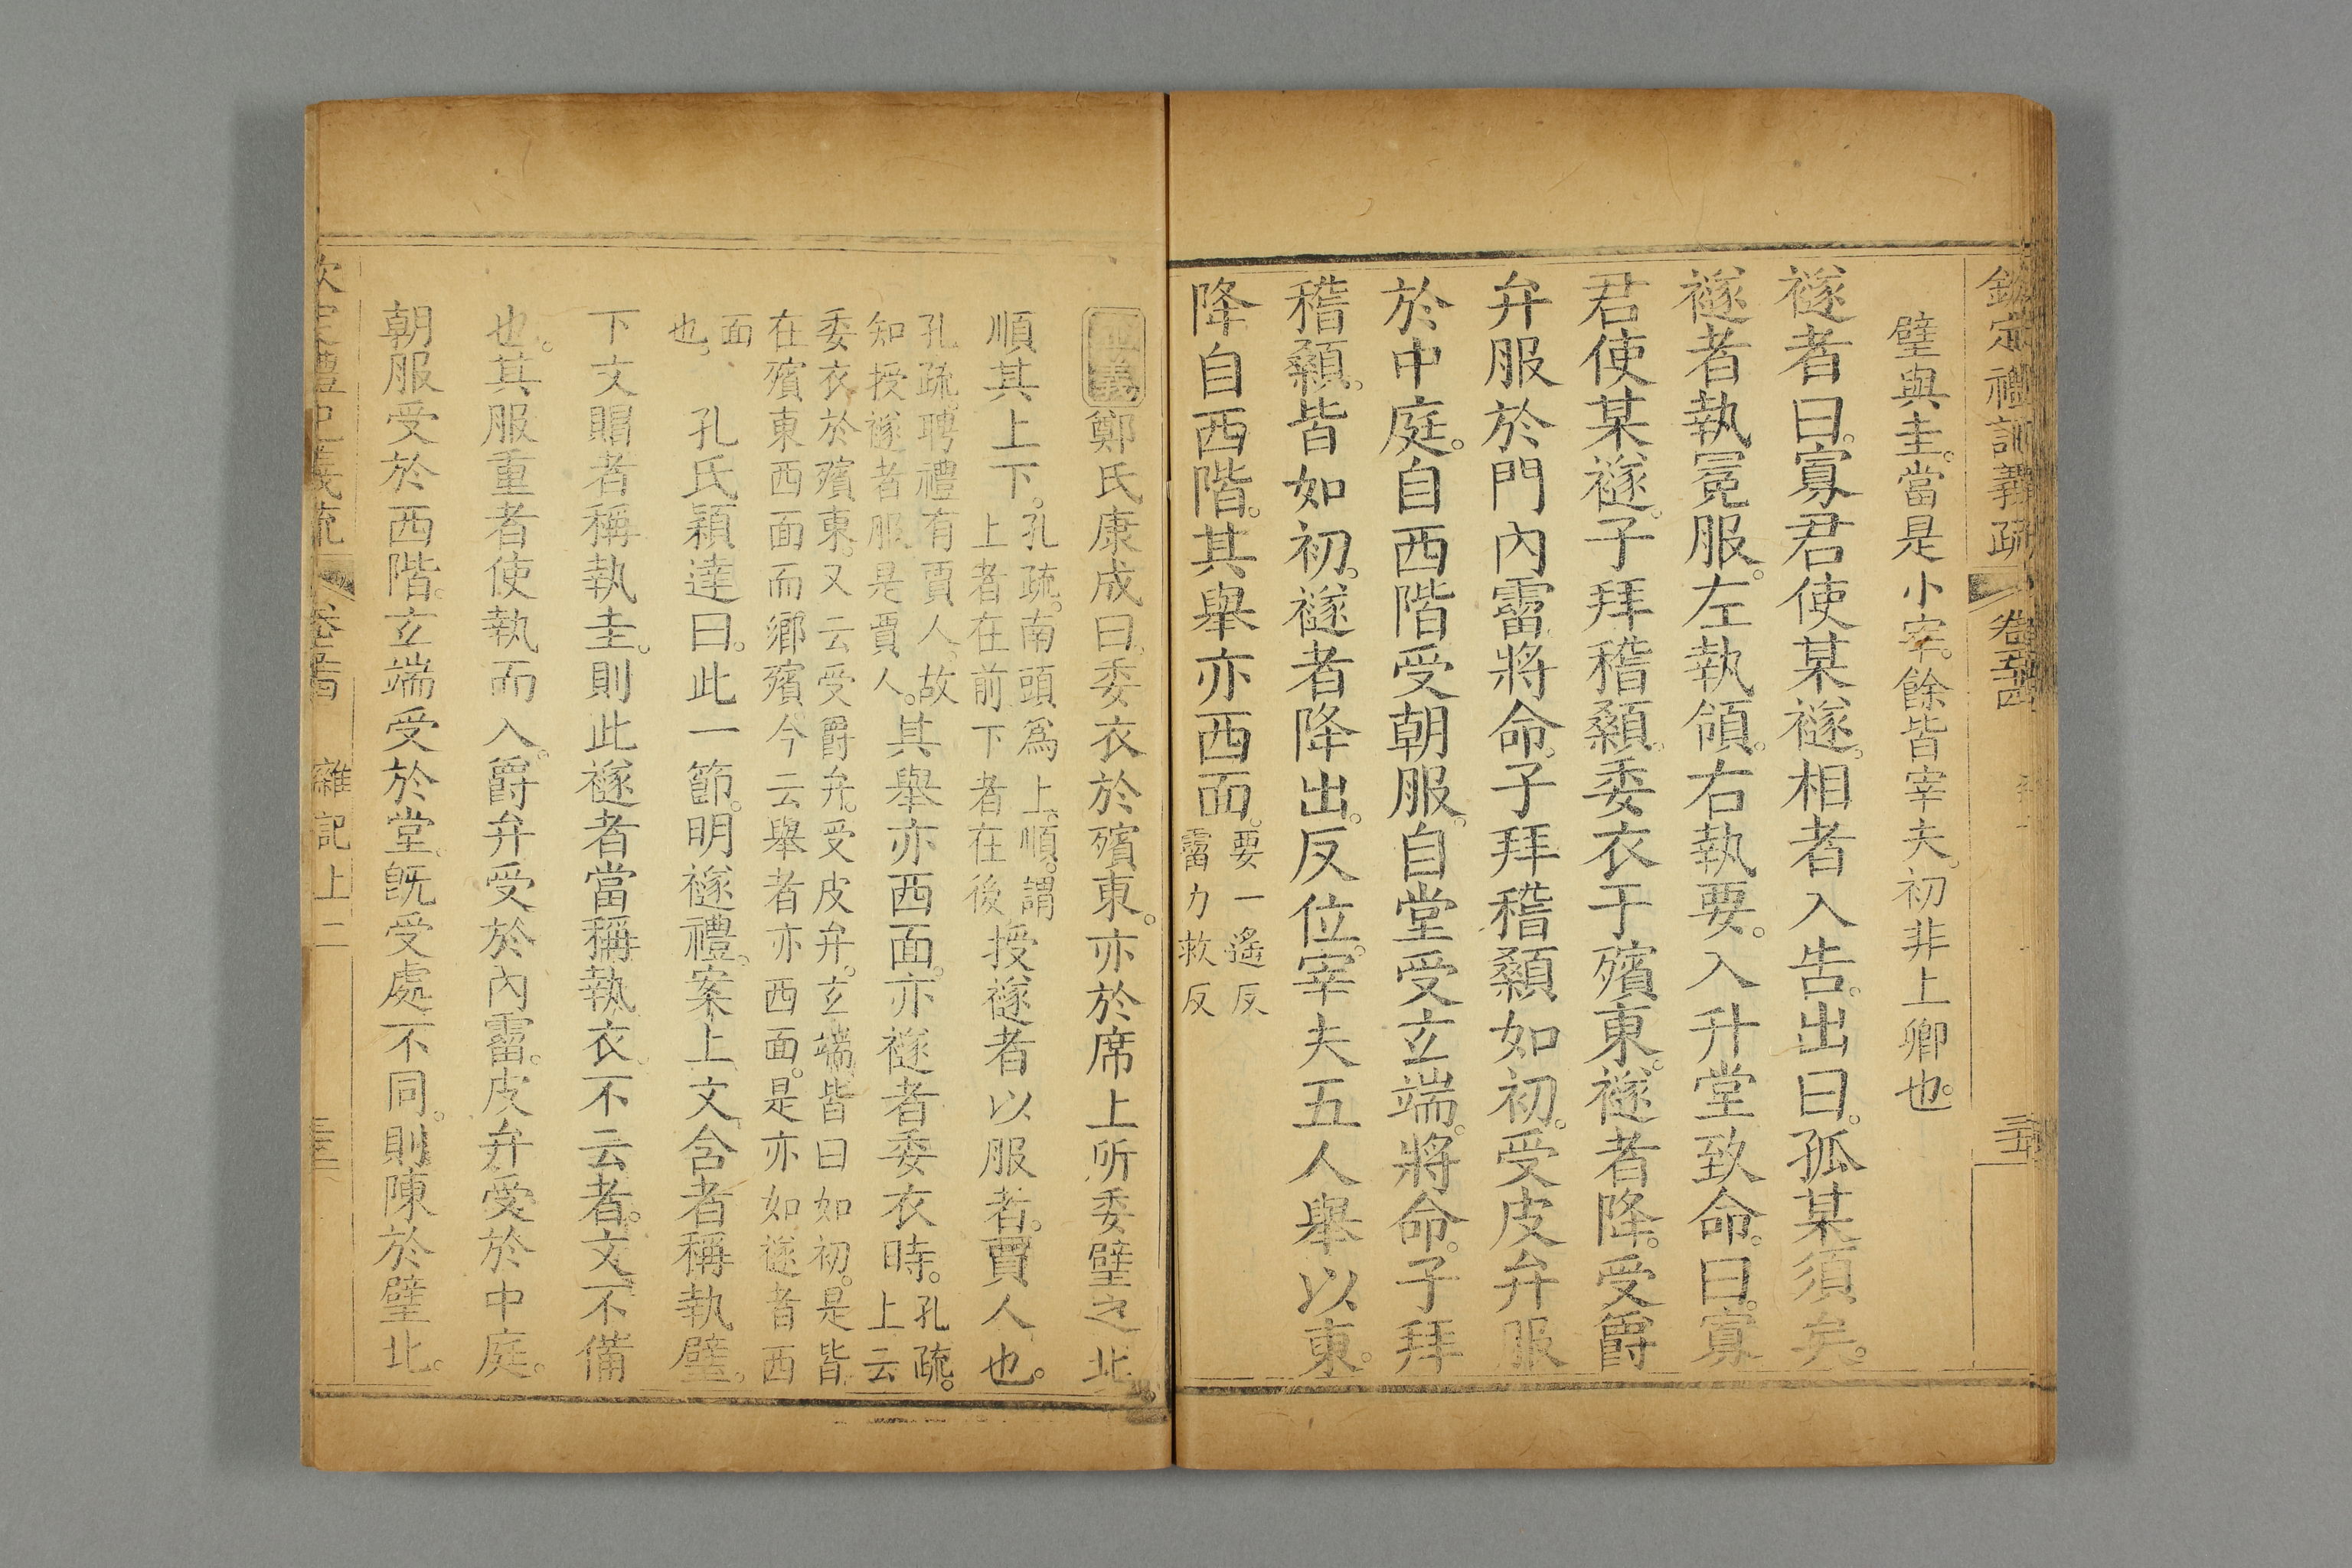 璧與圭。當是小宰。餘皆宰夫。初非上卿也。
襚者曰。寡君使某襚。相者入告。出曰。孤某須矣。
襚者執冕服。左執領。右執要。入升堂致命。曰。寡
君使某襚。子拜稽顙。委衣于殯東。襚者降。受爵
弁服於門內霤。將命。子拜稽顙如初。受皮弁服
於中庭。自西階受朝服。自堂受玄端。將命。子拜
稽顙。皆如初。襚者降出。反位。宰夫五人舉以東。
降自西階。其舉亦西面。要一遙反
霤力救反
鄭氏康成曰。委衣於殯東。亦於席上所委璧之北。
順其上下。孔疏。南頭為上。順。謂
上者在前下者在後。授襚者以服者。賈人也。
孔疏。聘禮有賈人。故
知授襚者服是賈人。其舉亦西面。亦襚者委衣時。孔疏。
上云
委衣於殯東。又云受爵弁。受皮弁。玄端。皆曰如初。是皆
在殯東西面而鄉殯今云舉者亦西面。是亦如襚者西
面
也。孔氏穎達曰。此一節。明襚禮。案上文。含者稱執璧。
下文賵者稱執圭。則此襚者當稱執衣。不云者。文不備
也。其服重者使執而入。爵弁受於內霤。皮弁受於中庭。
朝服受於西階。玄端受於堂。既受處不同。則陳於璧北。
雜記上二